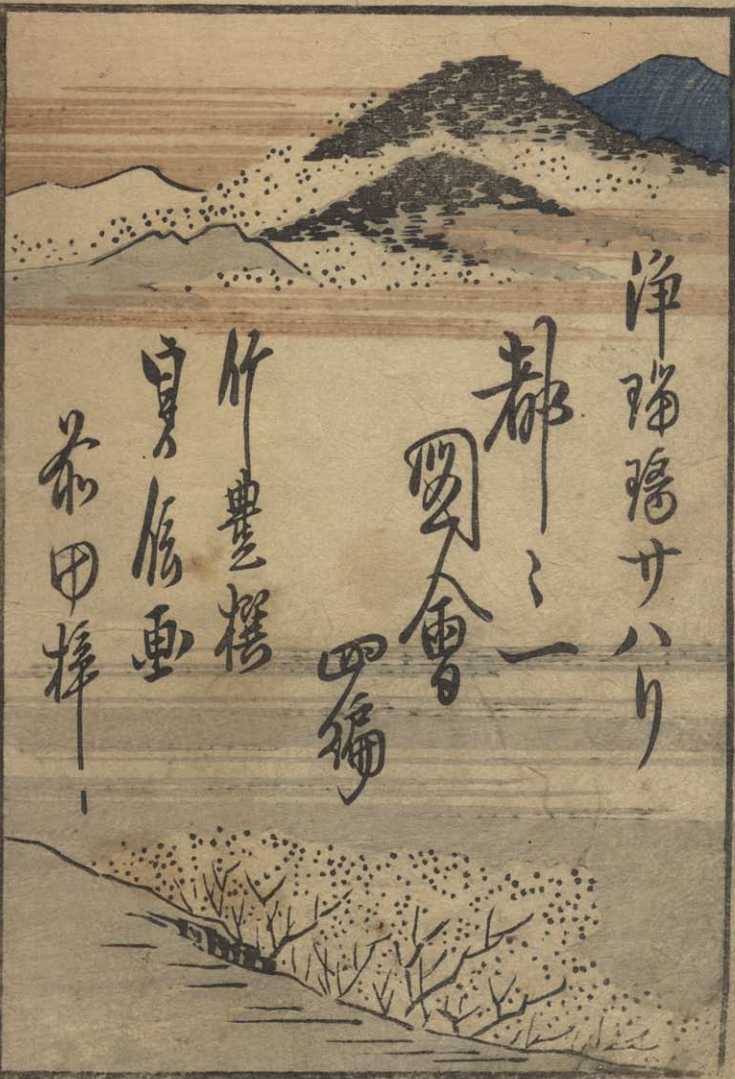 浄瑠璃サハリ
都〻一
圖會
四編
竹豊撰
貞信画
前田梓